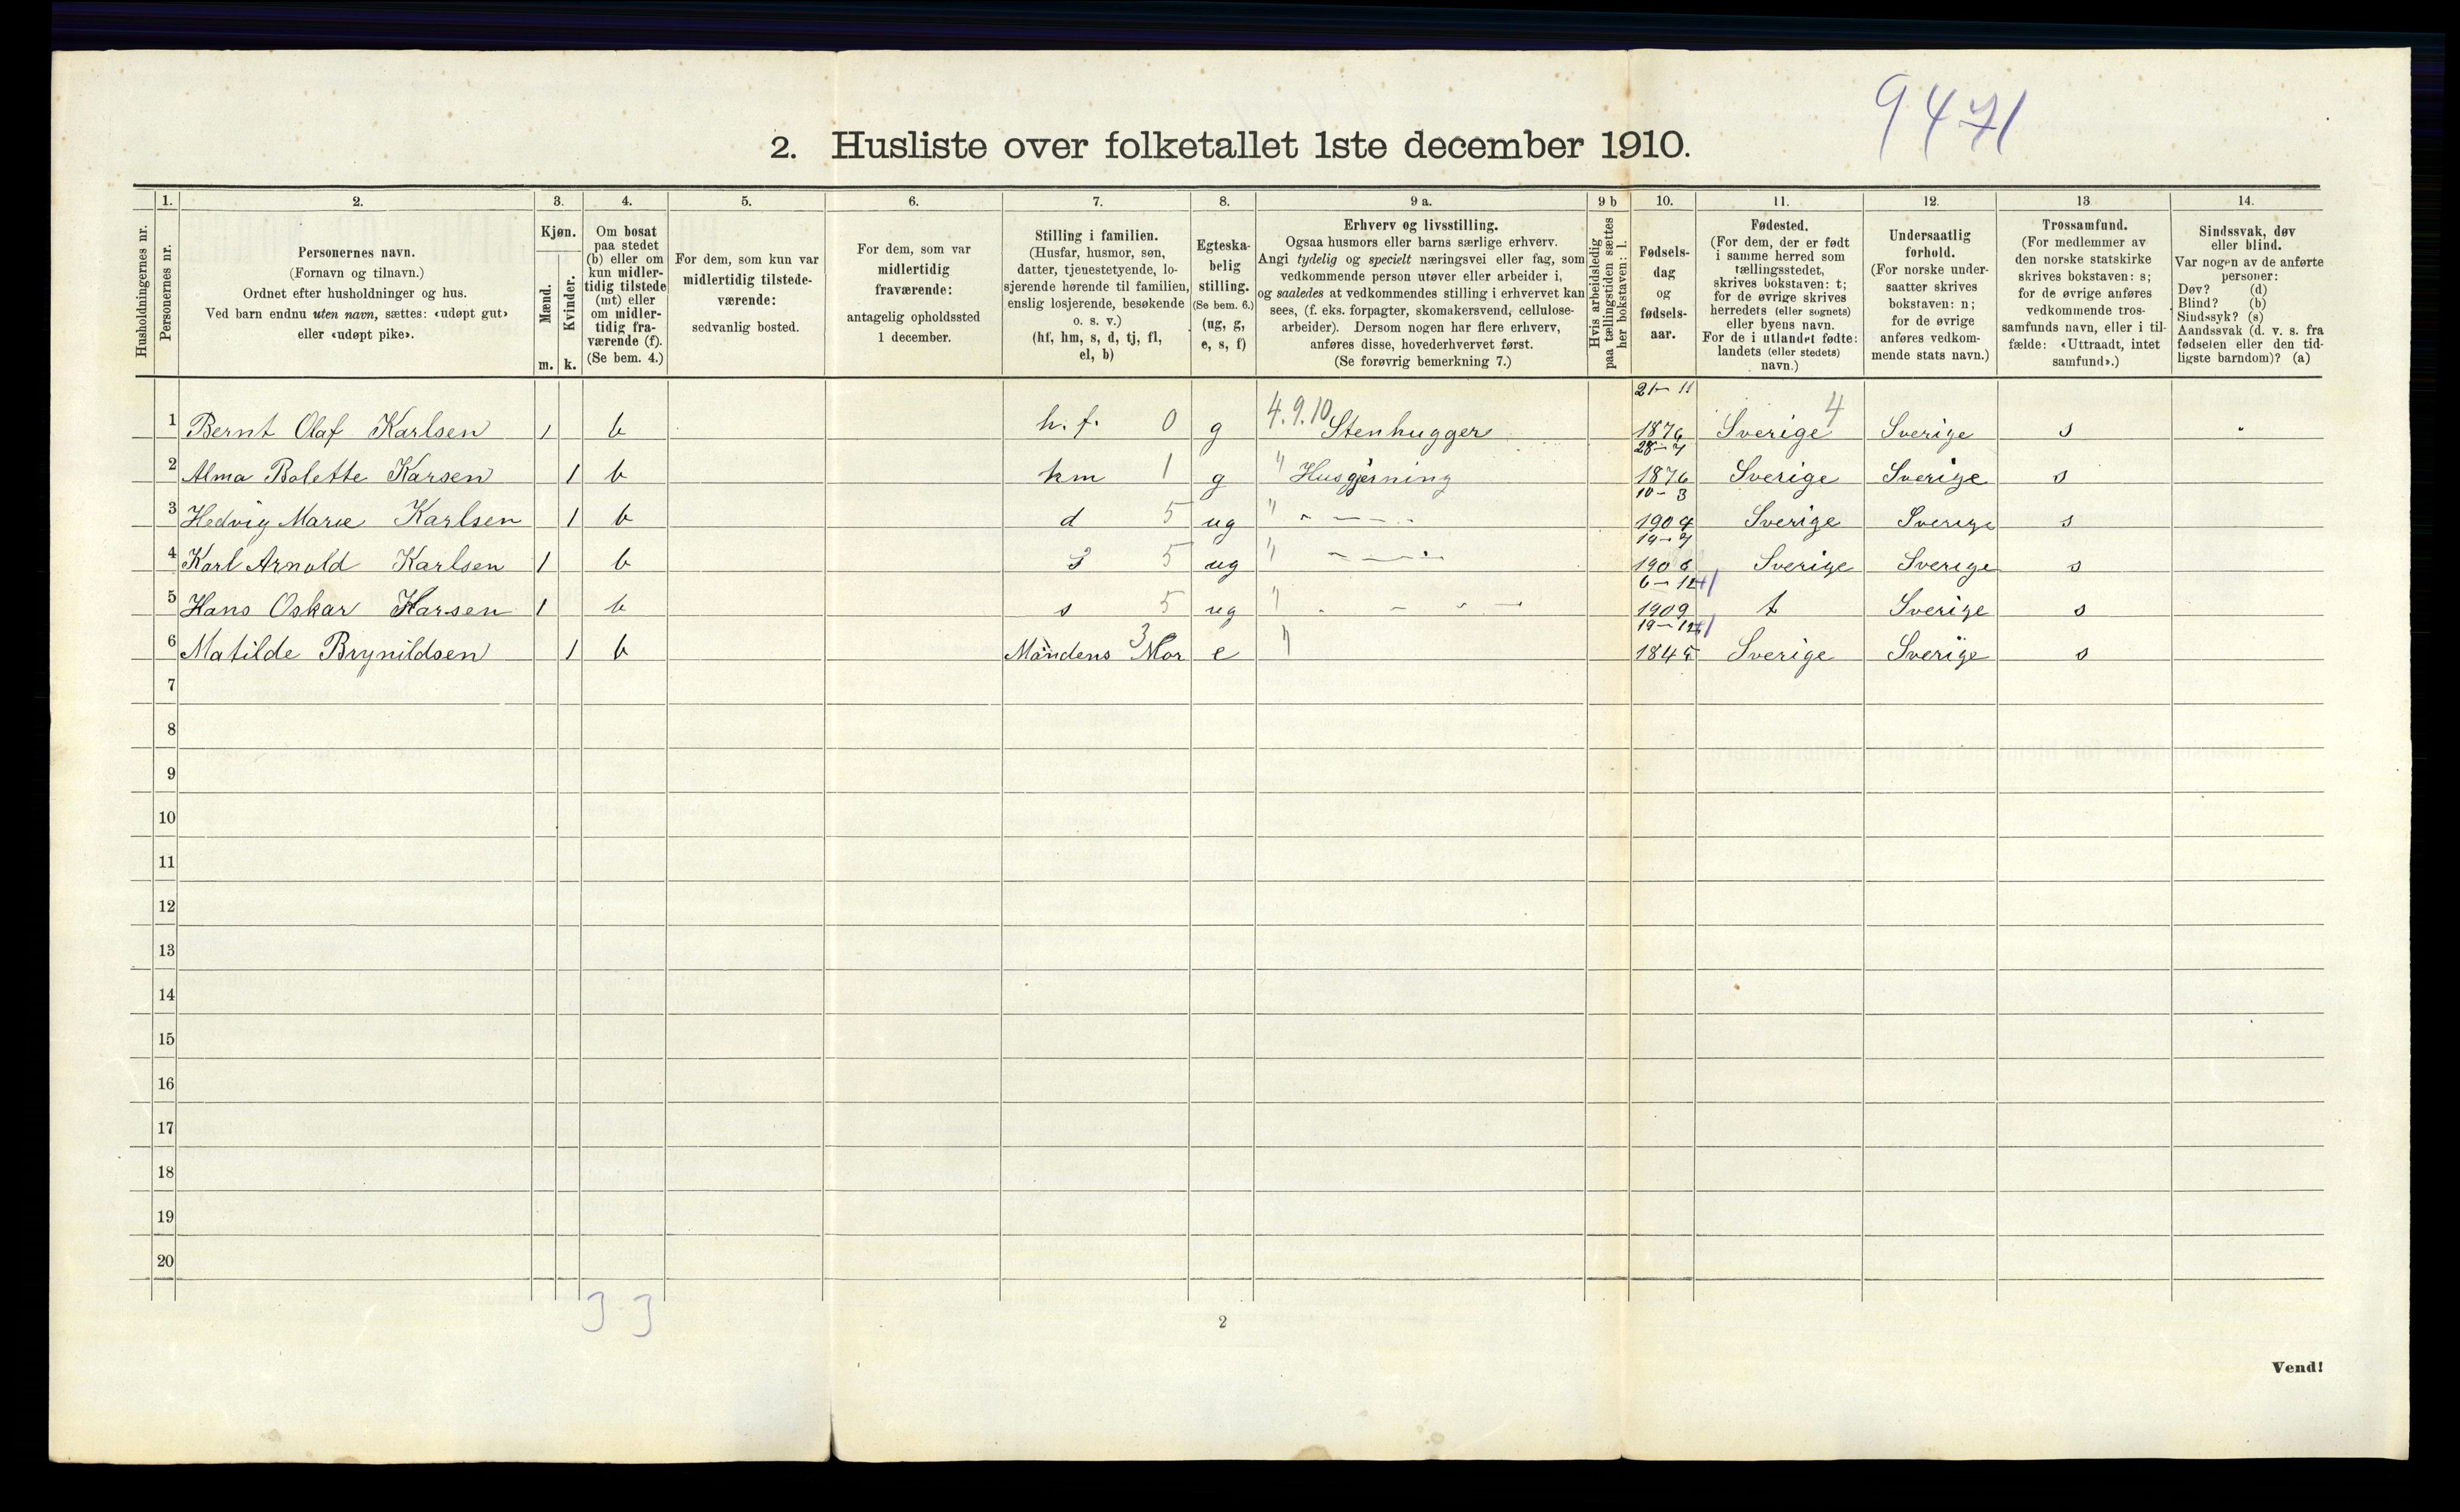 9471
2. Husliste over folketallet 1ste december 1910.
Husholdningernes nr.
1.
Personernes nr.
2.
Personernes navn.
(Fornavn og tilnavn.)
Ordnet efter husholdninger og hus.
Ved barn endnu uten navn, sættes: «udøpt gut»
eller «udøpt pike».
3.
Kjøn.
Mænd.
Kvinder.
m. k.
4.
Om bosat
paa stedet
(b) eller om
kun midler-
tidig tilstede
(mt) eller
om midler-
tidig fra-
værende (f).
(Se bem. 4.)
5.
For dem, som kun var
midlertidig tilstede-
værende:
sedvanlig bosted.
6.
For dem, som var
midlertidig
fraværende:
antagelig opholdssted
1 december.
7.
Stilling i familien.
(Husfar, husmor, søn,
datter, tjenestetyende, lo-
sjerende hørende til familien,
enslig losjerende, besøkende
o. s. v.)
(hf, hm, s, d, tj, fl,
el, b)
8.
Egteska-
belig
stilling.
(Se bem. 6.)
(ug, g,
e, s, f)
9 a.
Erhverv og livsstilling.
Ogsaa husmors eller barns særlige erhverv.
Angi tydelig og specielt næringsvei eller fag, som
vedkommende person utøver eller arbeider i,
og saaledes at vedkommendes stilling i erhvervet kan
sees, (f. eks. forpagter, skomakersvend, cellulose-
arbeider). Dersom nogen har flere erhverv,
anføres disse, hovederhvervet først.
(Se forøvrig bemerkning 7.)
9 b
Hvis arbeidsledig
paa tællingstiden sættes
her bokstaven: l.
10.
Fødsels-
dag
og
fødsels-
aar.
11.
Fødested.
(For dem, der er født
i samme herred som
tællingsstedet,
skrives bokstaven: t;
for de øvrige skrives
herredets (eller sognets)
eller byens navn.
For de i utlandet fødte:
landets (eller stedets)
navn.)
12.
Undersaatlig
forhold.
(For norske under-
saatter skrives
bokstaven: n;
for de øvrige
anføres vedkom-
mende stats navn.)
13
Trossamfund.
(For medlemmer av
den norske statskirke
skrives bokstaven: s;
for de øvrige anføres
vedkommende tros-
samfunds navn, eller i til-
fælde: «Uttraadt, intet
samfund».)
14.
Sindssvak, døv
eller blind.
Var nogen av de anførte
personer:
Døv? (d)
Blind? (b)
Sindssyk? (s)
Aandssvak (d. v. s. fra
fødselen eller den tid-
ligste barndom)? (a)
21-11
1 Bernt Olaf Karlsen 1 b h. f. 0 g 4.9.10 Stenhugger 1876 Sverige 4 Sverige s
2 Alma Bolette Karsen 1 b hm 1 g " Husgjerning 1876 Sverige Sverige s
10-3
3 Hedvig Marie Karlsen 1 b d 5 ug " " - - - 1904 Sverige Sverige s
4 Karl Arnold Karlsen 1 b s 5 ug " - - - Sverige Sverige s
6-12
5 Hans Oskar Karsen 1 b s 5 ug " - - - 1909 t Sverige s
19-12
6 Matilde Brynildsen 1 b Mandens 3 Mor e " 1845 Sverige Sverige s
7
8
9
10
11
12
13
14
15
16
17
18
19
20
3 3
2
Vend!